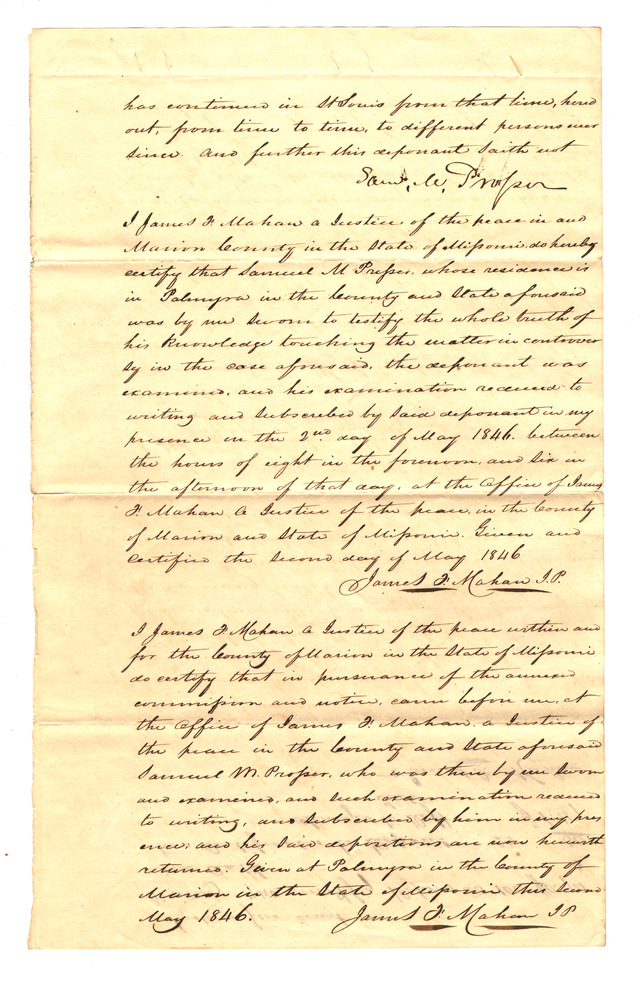 has continued in St Louis from that time, hired
out, from time to time, to different persons ever
since. And further this deponant saith not
Saml. M. Prosser
I James F. Mahan a Justice of the peace in and
Marion County in the State of Missouri, do hereby
certify that Samuel M Prosser, whose residence is
in Palmyra in the County and State aforesaid
was by me sworn to testify the whole truth of
his knowledge touching the matter in controver
sy in the case aforesaid, the deponant was
examined, and his examination reduced to
writing and subscribed by said deponant in my
presence on the 2nd day of May 1846. between
the hours of eight in the forenoon, and six in
the afternoon of that day, at the Office of James
F. Mahan a Justice of the peace, in the County
of Marion and State of Missouri. Given and
certified the second day of May 1846
James F. Mahan J.P.
I James F. Mahan a Justice of the peace within and
for the County of Marion in the State of Missouri
do certify that in pursuance of the annexed
commission and notice, came before me, at
the Office of James F. Mahan, a Justice of
the peace in the County and State aforesaid
Samuel M. Prosser, who was then by me sworn
and examined, and such examination reduced
to writing, and subscribed by him in my pres
ence; and his said depositions are now herewith
returned. Given at Palmyra in the County of
Marion in the State of Missouri this second
May 1846.
James F. Mahan JP